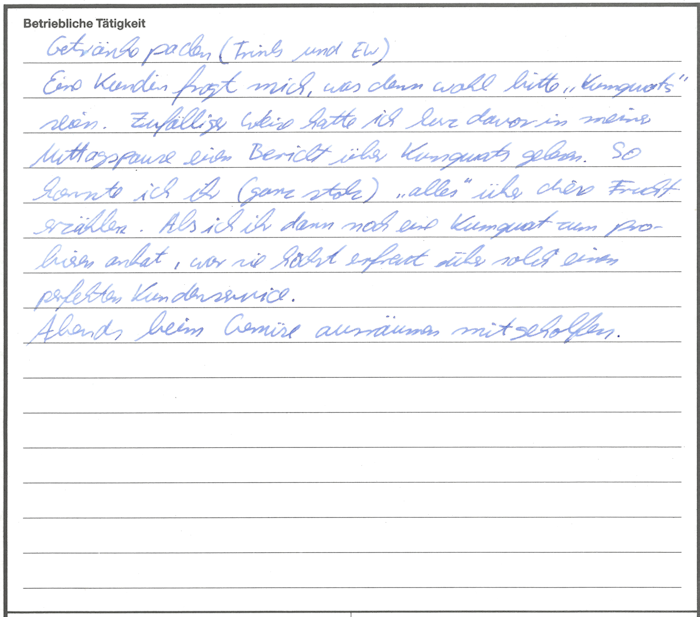 Betriebliche Tätigkeit
Getränke packen (Trink und EW)
Eine Kundin fragt mich, was denn wohl bitte „Kumquats"
seien. Zufälliger Weise hatte ich kurz davor in meiner
Mittagspause einen Bericht über Kumquats gelesen. So
konnte ich ihr (ganz stolz) „alles" über diese Frucht
erzählen. Als ich ihr dann noch eine Kumquat zum pro-
bieren anbat, war sie höchst erfreut über solch einen
perfekten Kundenservice.
Abends beim Gemüse ausräumen mitgeholfen.